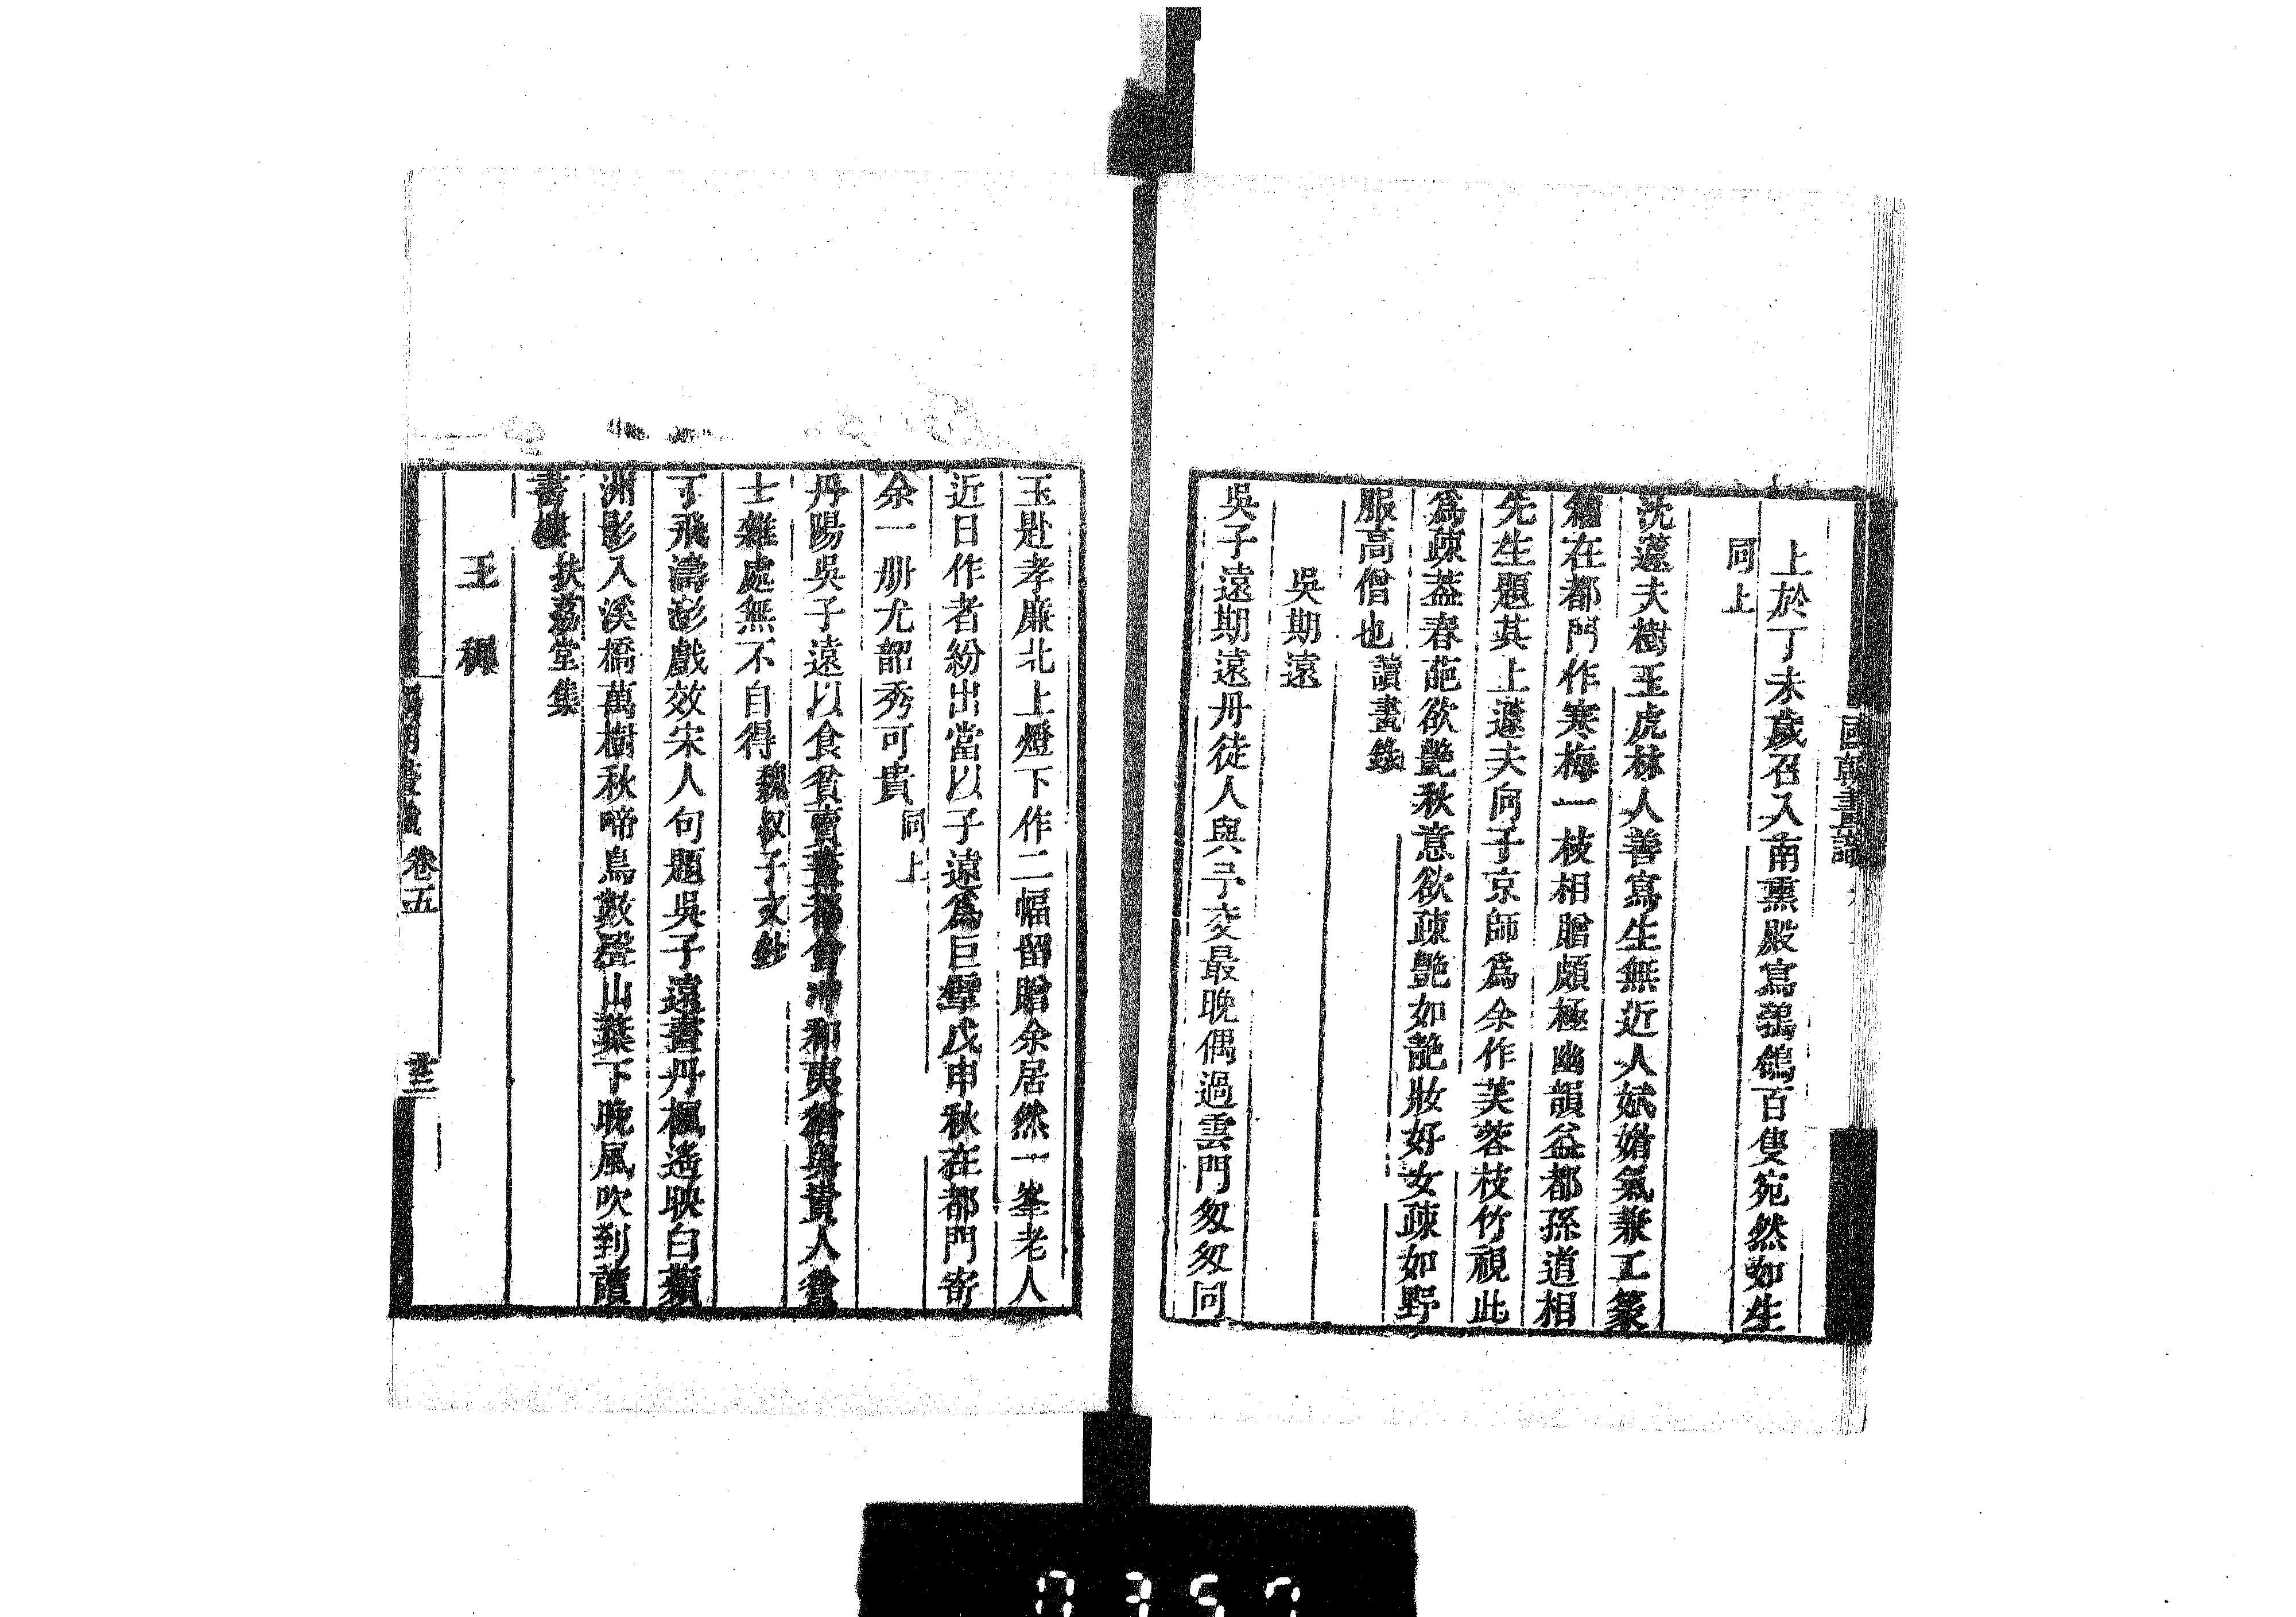 國朝畫識
上於丁未歲召入南熏殿寫鵓鴿百隻宛然如生
同上
沈蘧夫樹玉虎林人善寫生無近人斌媚氣兼工篆
籀在都門作寒梅一枝相贈頗極幽韻益都孫道相
先生題其上蘧夫向子京師爲余作芙蓉枝竹視此
爲疎葢春葩欲艶秋意欲疎艶如靚妝好女疎如野
服高僧也讀畫錄
吳期遠
吳子遠期遠丹徒人與予交最晚偶過雲門匆匆同
玉赴孝廉北上燈下作二幅留贈余居然一峯老人
近日作者紛出當以子遠爲巨擘戊申秋在都門寄
余一册尤韶秀可貴同上
丹陽吳子遠以食貧賣畫都會冲和夷犹與貴人傖
士雜處無不自得魏叔子文鈔
丁飛濤澎戲效宋人句題吳子遠畫丹楓遙映白蘋
洲影入溪橋萬樹秋啼鳥數聲山葉下晚風吹到讀
書樓扶荔堂集
王
卷五